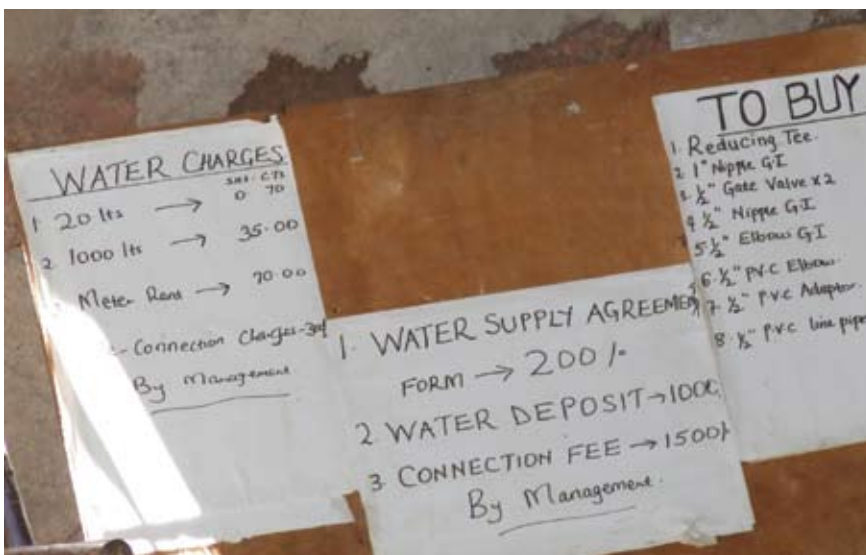 WATER CHARGES
SHS. CTS
1. 20 lts → 0 70
2. 1000 lts → 35.00
Meter Rent → 70.00
- Connection Charges -
By Management
1. WATER SUPPLY AGREEMENT
FORM → 200/-
2 WATER DEPOSIT → 1000
3. CONNECTION FEE → 1500/-
By Management.
TO BUY
1. Reducing Tee.
2. 1" Nipple G.I
3. ½" Gate Valve x 2
4 ½" Nipple G.I
5. ½" Elbow G.I
6. ½" P.V.C Elbow.
7. ½" P.V.C Adaptor.
8. ½" P.V.C line pipe